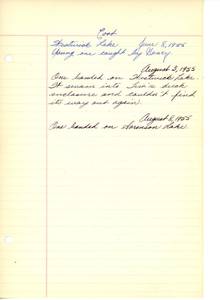 Coot
Lake June 8, 1955
Young one caught by Henry.
August 3, 1955
One banded on Lake.
It swam into duck
enclosure and couldn't find
its way out again.
August 8, 1955
One banded on Sorenson Lake.